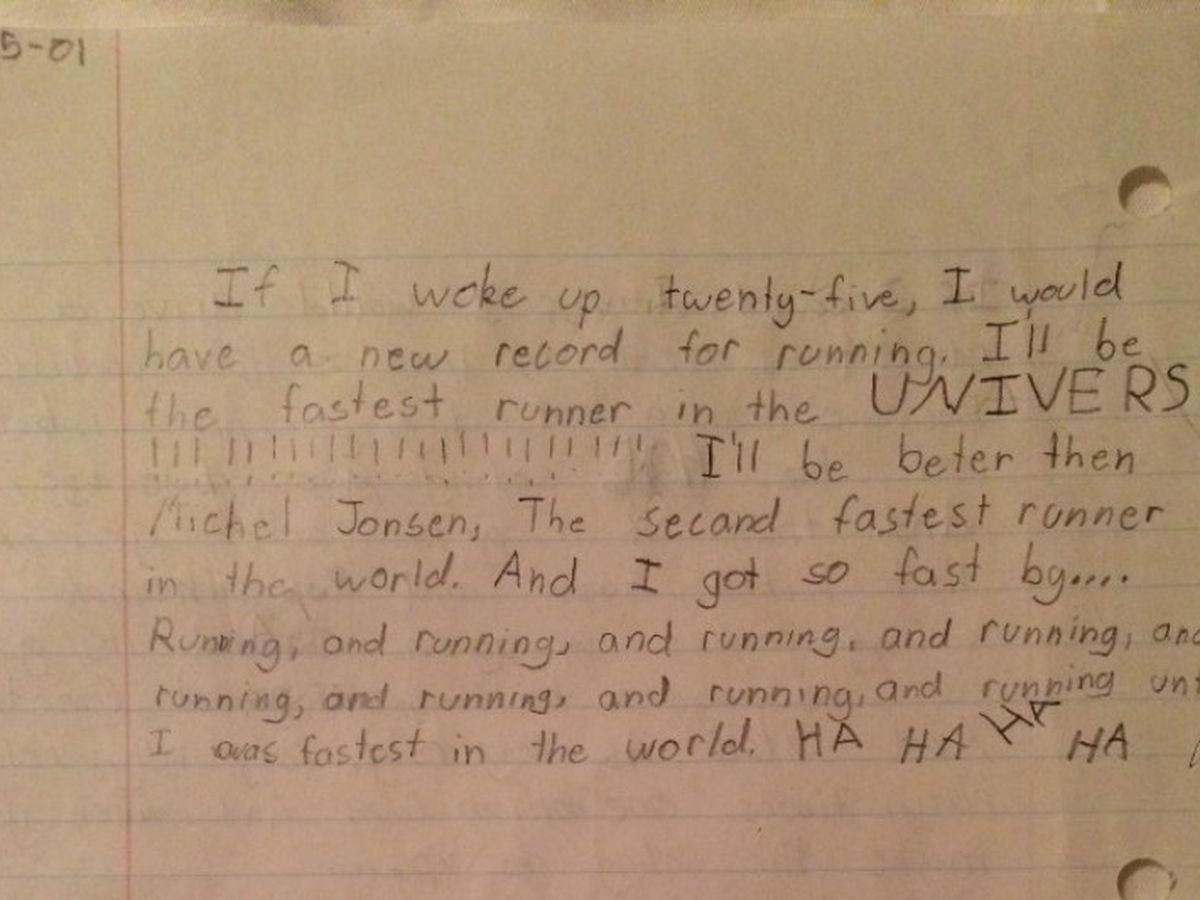 5-01
If I woke up twenty-five, I would
have a new record for running. I'll be
the fastest runner in the UNIVERS
!!!!!!!!!!!!!!!!!!!!!! I'll be beter then
Michel Jonsen, The secand fastest runner
in the world. And I got so fast by....
Running, and running, and running, and running, and
running, and running, and running, and running unt
I was fastest in the world. HA HA HA HA